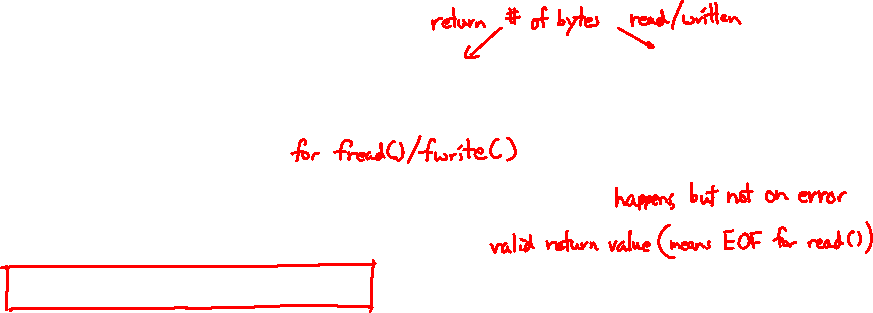 return # of bytes read/written
for fread()/fwrite()
happens but not on error
valid return value (means EOF for read())